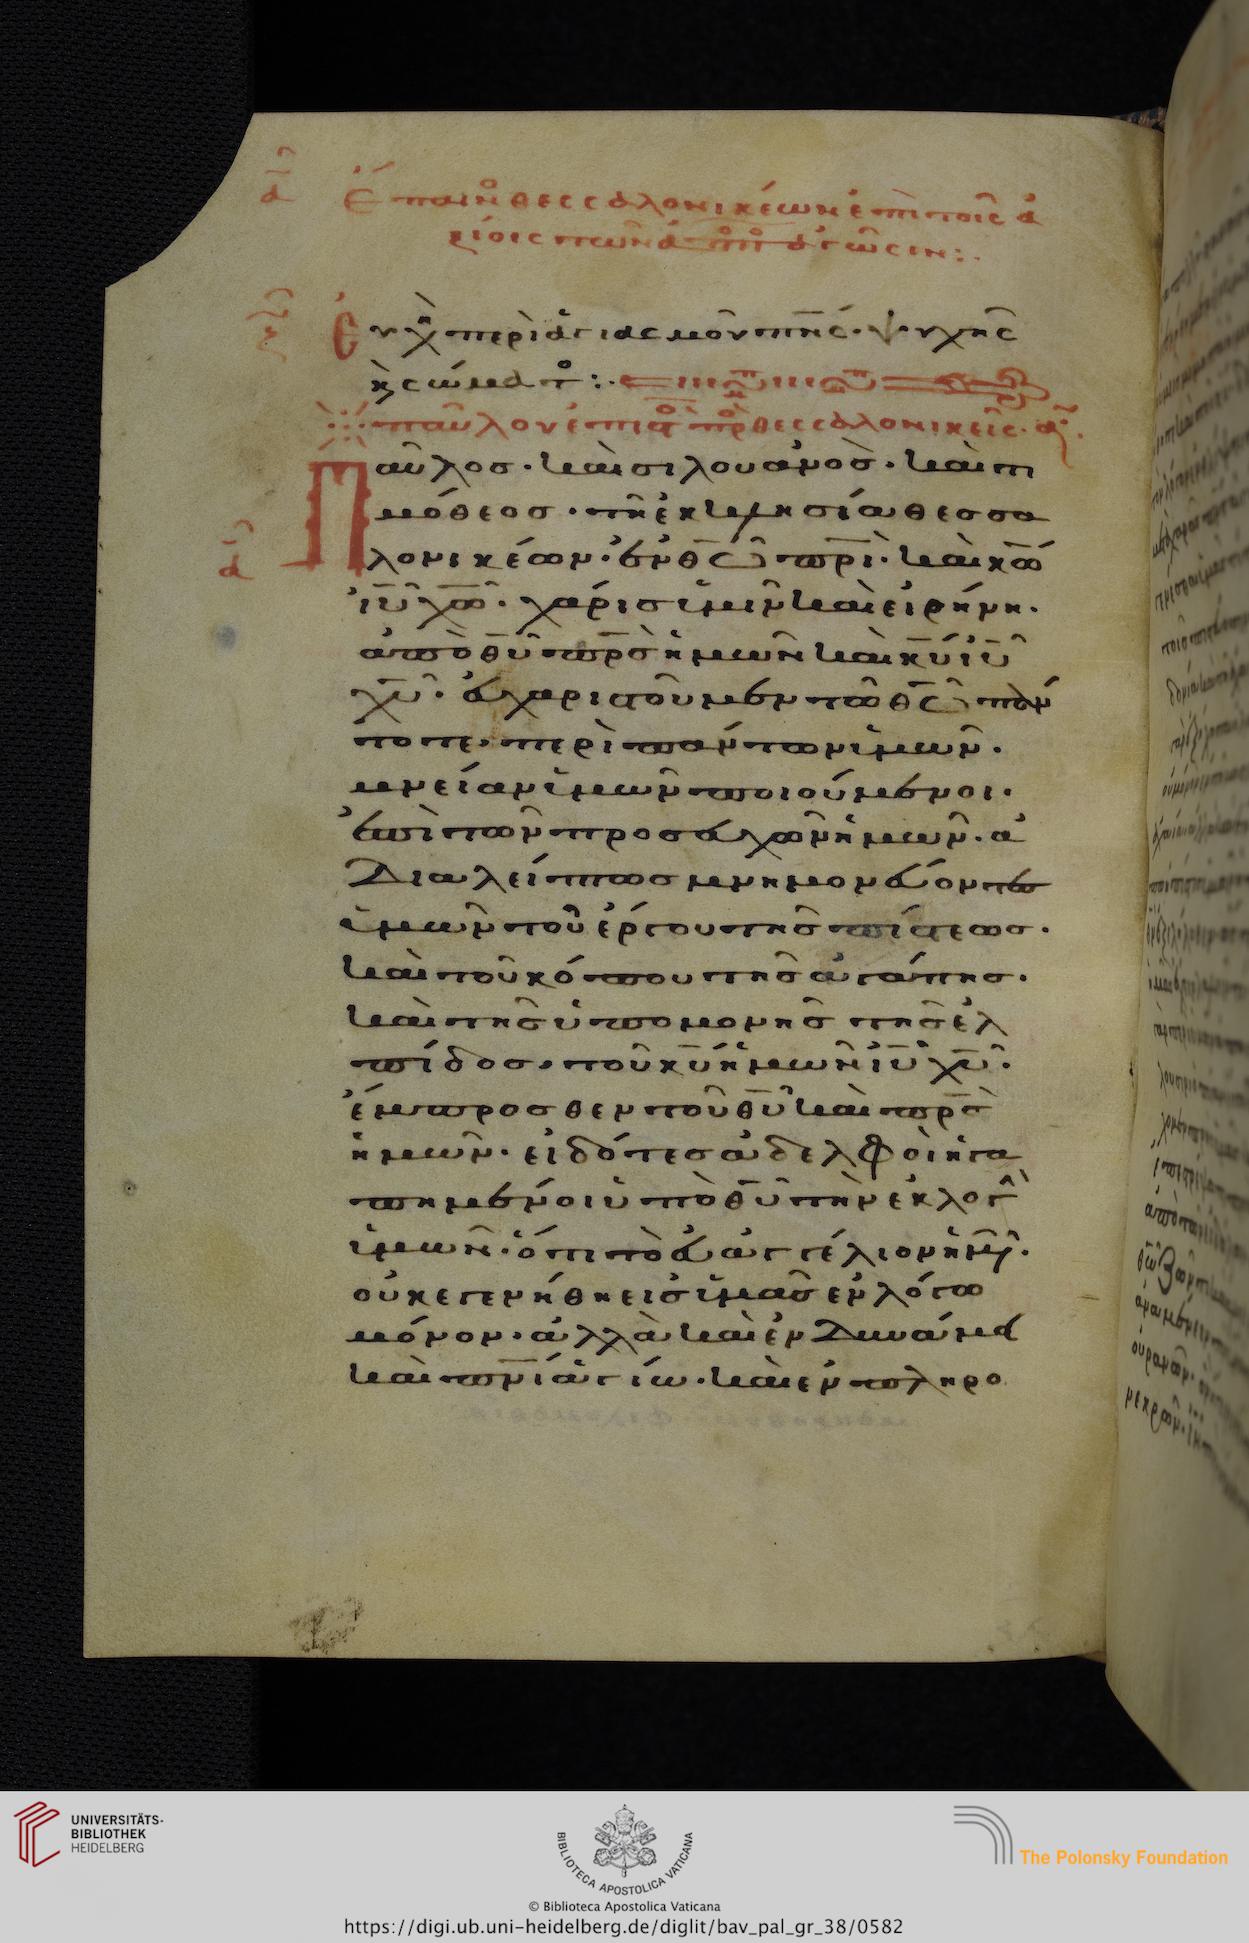 α
Ἔπαιν θεσσαλονικέων ἐπὶ τοῖς ἀ
ξίοις
Εὐχὴ περὶ ἁγιασμοῦ τῆς ψυχῆς
κ σώματ :·
παύλου ἐπιστο πρ θεσσαλονικεῖς· α
Παῦλοσ· καὶ σιλουανὸσ· καὶ τι
μόθεοσ· τῆ ἐκκλησία θεσσα
α
λονικέων· ἐν θω πρι· καὶ κω
ιυ χω· χάρισ ὑμῖν καὶ εἰρήνη·
ἀπὸ θυ πρσ ἡμῶν καὶ κυ ιυ
χυ· εὐχαριστοῦμεν τῶ θω πάν
τοτε· περὶ πάντων ὑμῶν·
μνείαν ὑμῶν ποιούμενοι·
ἐπὶ τῶν προσευχῶν ἡμῶν· ἀ
διαλείπτωσ μνημονεύοντεσ
ὑμῶν τοῦ ἔργου τῆσ πίστεωσ·
καὶ τοῦ κόπου τῆσ ἀγάπησ·
καὶ τῆσ ὑπομονῆσ τῆσ ἐλ
πίδοσ· τοῦ κυ ἡμῶν ιυ χυ·
ἔμπροσθεν τοῦ θυ καὶ πρσ
ἡμῶν· εἰδότεσ ἀδελφοὶ ἠγα
πημένοι ὑπὸ θυ τὴν ἐκλογὴ
ὑμῶν· ὅτι τὸ εὐαγγέλιον ἡμῶν·
οὐκ ἐγενήθη εἰσ ὑμᾶσ ἐν λόγω
μόνον· ἀλλὰ καὶ ἐν δυνάμει
καὶ πνι ἁγίω· καὶ ἐν πληρο
UNIVERSITÄTS-
BIBLIOTHEK
HEIDELBERG
BIBLIOTECA APOSTOLICA VATICANA
© Biblioteca Apostolica Vaticana
The Polonsky Foundation
https://digi.ub.uni-heidelberg.de/diglit/bav_pal_gr_38/0582